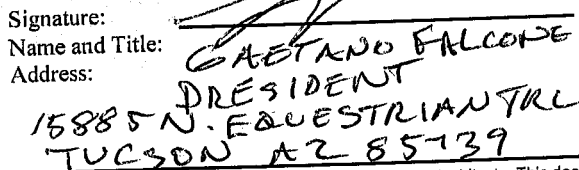 Signature:
Name and Title: GAETANO FALCONE
Address: PRESIDENT
15885 N. EQUESTRIAN TRL
TUCSON AZ 85739